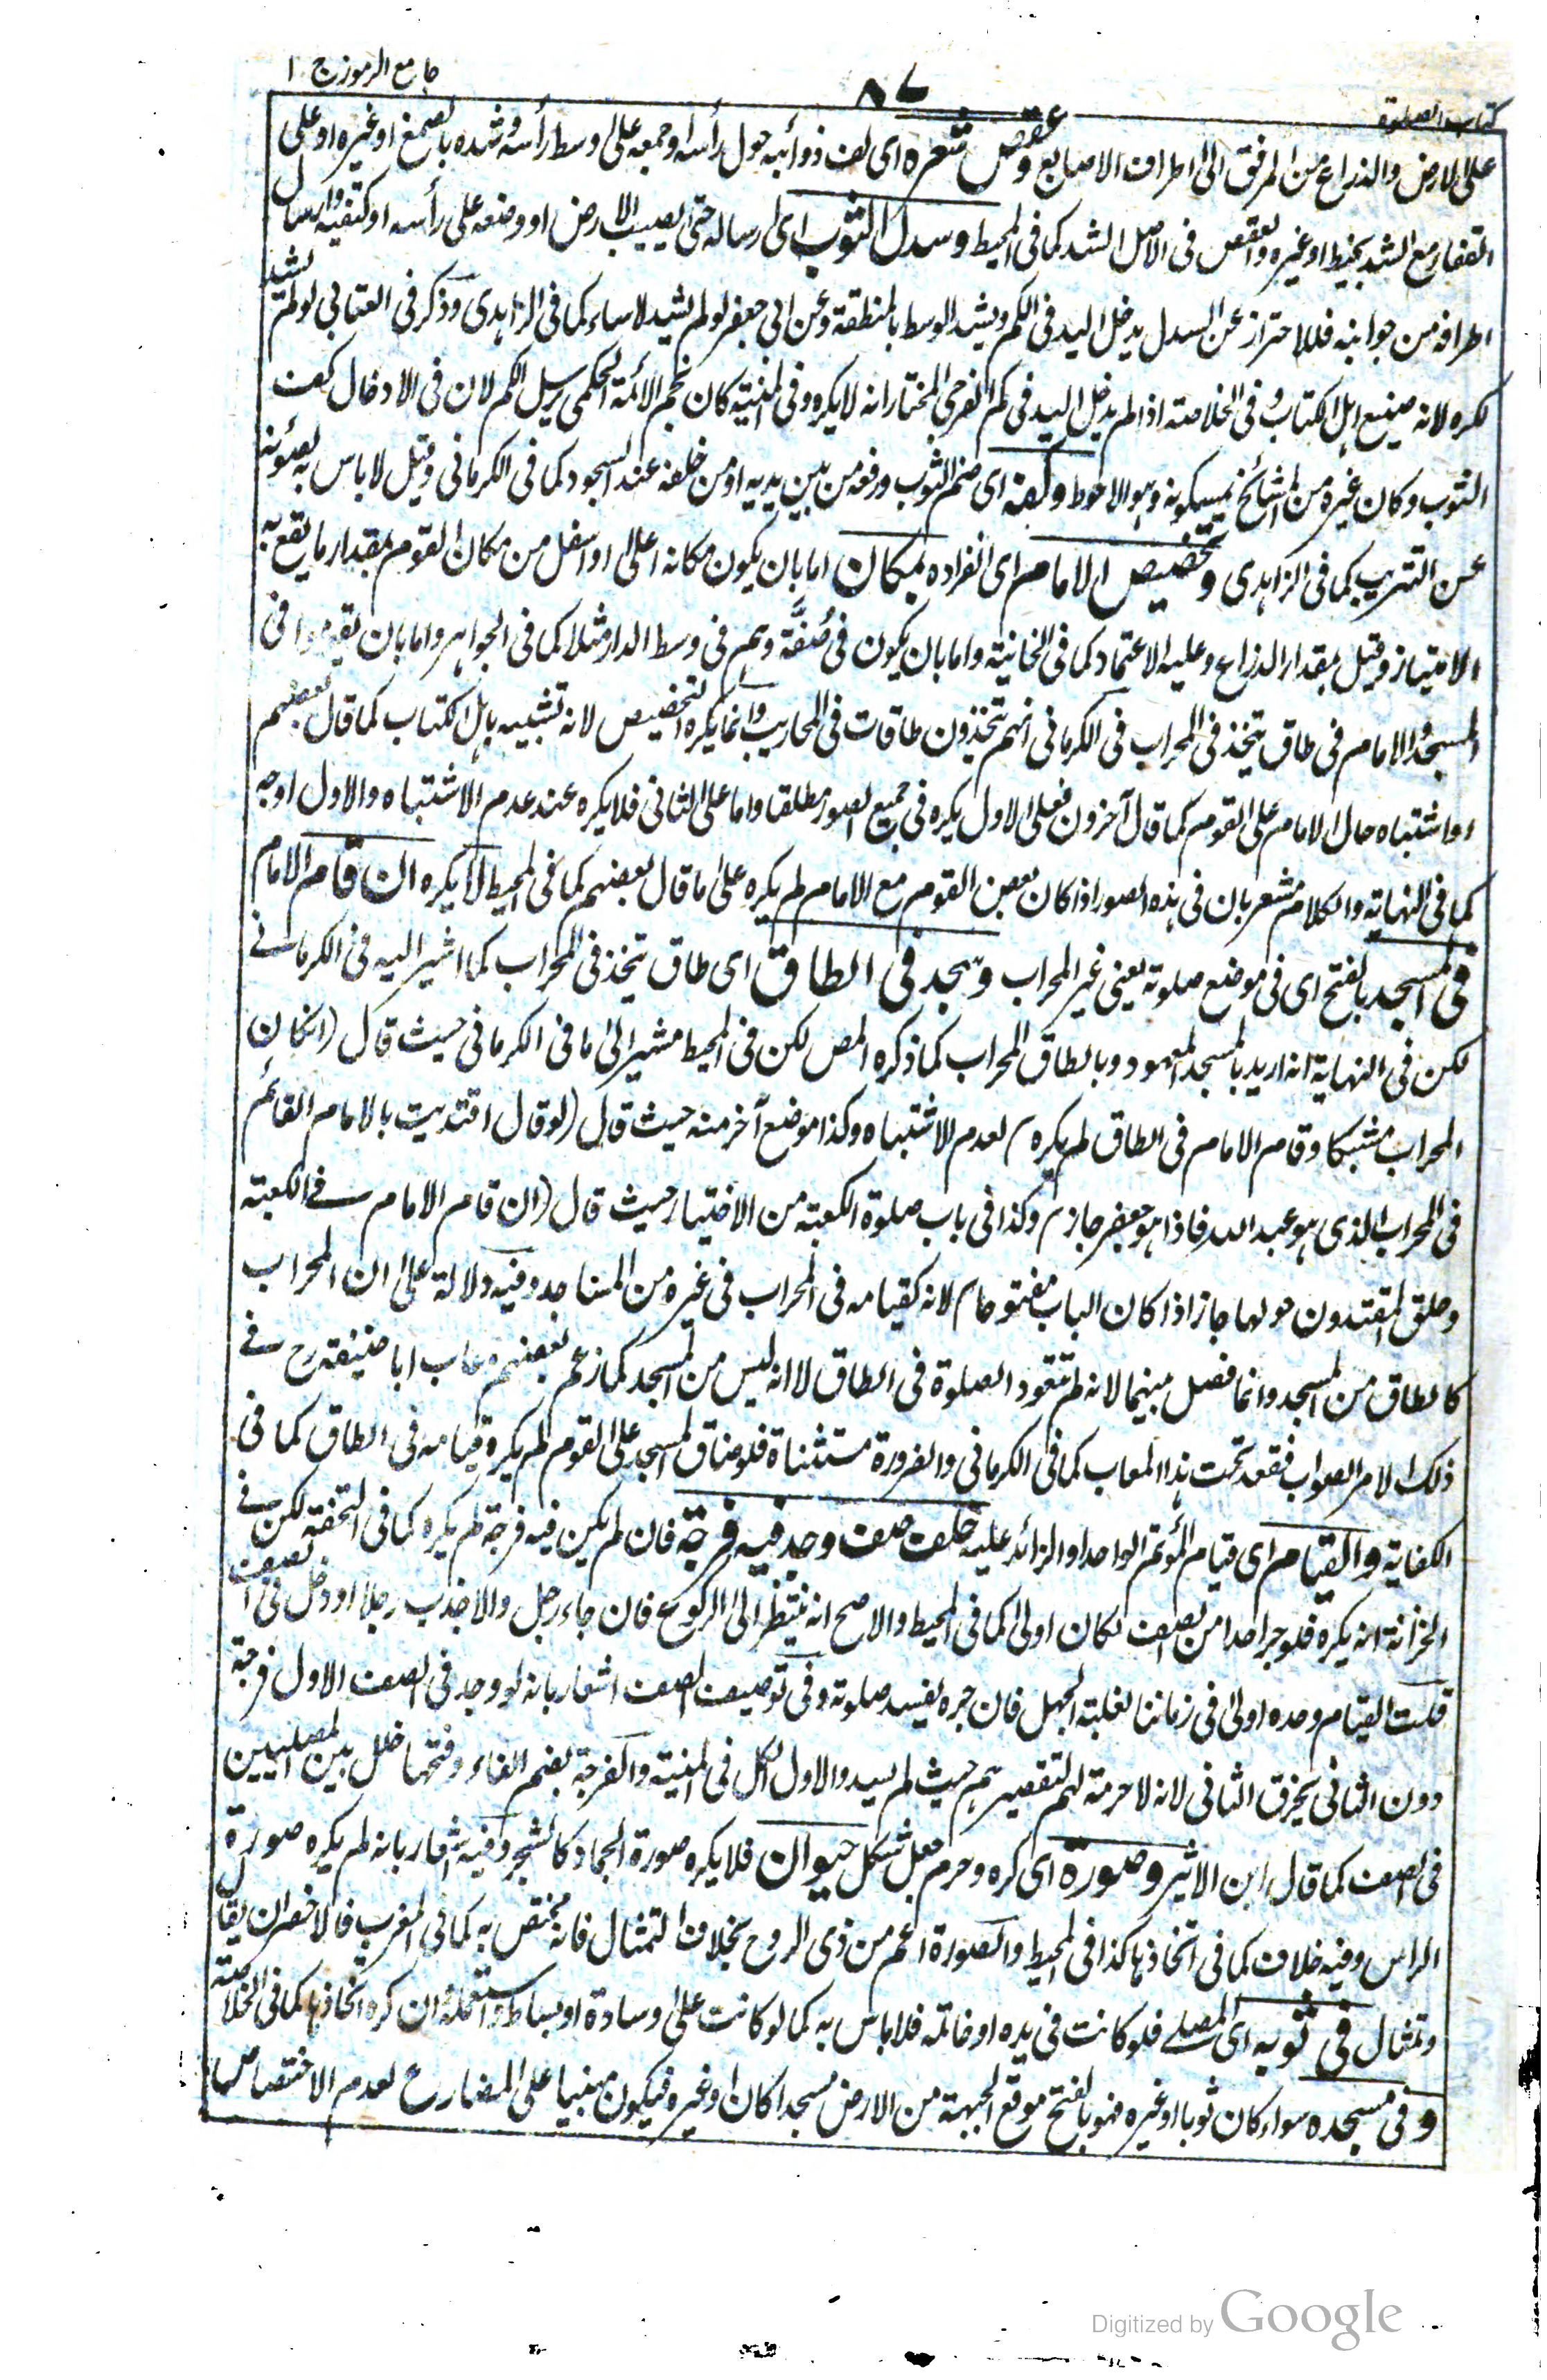 جامع الرموز ج ۱
۸۷
کتاب الصلوة
علی الارض والذراع من المرفق الی اطراف الاصابع وعقص شعره ای لف ذوائبه حول رأسه او جمعه علی وسط رأسه وشده بالصمغ او غیره او علی
القفا مع الشد بخیط او غیره والعقص فی الاصل الشد کما فی المحیط وسدل الثوب ای ارساله حتی یصیب الارض او وضعه علی رأسه او کتفیه وارسال
اطرافه من جوانبه فللاحتراز عن السدل یدخل الید فی الکم ویشد الوسط بالمنطقة وعن ابی جعفر لو لم یشد لاساء کما فی الزاهدی وذکر فی العتابی لو لم یشد
لکره لانه صنیع اهل الکتاب وفی الخلاصة اذا لم یدخل الید فی کم الفرجی المختار انه لا یکره وفی المنیة کان نجم الائمة الحکمی یرسل الکم لان فی الادخال کف
الثوب وکان غیره من المشائخ یمسکونه وهو الاحوط وکفه ای ضم الثوب ورفعه من بین یدیه او من خلفه عند السجود کما فی الکرمانی وقیل لا باس به لصونه
عن التتریب کما فی الزاهدی وتخصیص الامام ای انفراده بمکان اما بان یکون مکانه اعلی او اسفل من مکان القوم بمقدار ما یقع به
الامتیاز وقیل بمقدار الذراع وعلیه الاعتماد کما فی الخانیة واما بان یکون فی صُفَّة وهم فی وسط الدار مثلا کما فی الجواهر واما بان یقوموا فی
المسجد والامام فی طاق یتخذ فی المحراب فی الکرمانی انهم یتخذون طاقات فی المحاریب وانما یکره التخصیص لانه تشبیه باهل الکتاب کما قال بعضهم
او اشتباه حال الامام علی القوم کما قال آخرون فعلی الاول یکره فی جمیع الصور مطلقا واما علی الثانی فلا یکره عند عدم الاشتباه والاول اوجه
کما فی النهایة والکلام مشعر بان فی هذه الصور اذا کان بعض القوم مع الامام لم یکره علی ما قال بعضهم کما فی المحیط لا یکره ان قام الامام
فی المسجد بالفتح ای فی موضع صلوته یعنی غیر المحراب وسجد فی الطاق ای طاق یتخذ فی المحراب کما اشیر الیه فی الکرمانی
لکن فی النهایة انه ارید بالمسجد المعهود وبالطاق المحراب کما ذکره المص لکن فی المحیط مشیر الی ما فی الکرمانی حیث قال (ان کان
المحراب مشبکا وقام الامام فی الطاق لم یکره) لعدم الاشتباه وکذا موضع آخر منه حیث قال (لو قال اقتدیت بالامام القائم
فی المحراب الذی هو عبد الله فاذا هو جعفر جاز) وکذا فی باب صلوة الکعبة من الاختیار حیث قال (ان قام الامام فی الکعبة
وحلق المقتدون حولها جاز اذا کان الباب مفتوحا) لانه کقیامه فی المحراب فی غیره من المساجد وفیه دلالة علی ان المحراب
کالطاق من المسجد وانما فصل بینهما لانه لم تتعود الصلوة فی الطاق لا انه لیس من المسجد کما زعم بعضهم وعاب ابا حنیفة رح فی
ذلک الامر الصواب فقعد تحت هذا المعاب کما فی الکرمانی والضرورة مستثناة فلو ضاق المسجد علی القوم لم یکره قیامه فی الطاق کما فی
الکفایة والقیام ای قیام المؤتم الواحد او الزائد علیه خلف صف وجد فیه فرجة فان لم یکن فیه فرجة لم یکره کما فی التحفة لکن فی
الخزانة انه یکره فلو جر احدا من الصف لکان اولی کما فی المحیط والاصح انه ینتظر الی الرکوع فان جاء رجل والا جذب رجلا او دخل فی الصف
قلت القیام وحده اولی فی زماننا لغلبة الجهل فان جره یفسد صلوته وفی توصیف الصف اشعار بانه لو وجد فی الصف الاول فرجة
دون الثانی یخرق الثانی لانه لا حرمة لهم لتقصیرهم حیث لم یسدوا الاول الکل فی المنیة والفرجة بضم الفاء وفتحها خلل بین المصلیین
فی الصف کما قال ابن الاثیر وصورة ای کره وحرم جعل شکل حیوان فلا یکره صورة الجماد کالشجر وفیه اشعار بانه لم یکره صورة
الراس وفیه خلاف کما فی اتخاذها کذا فی المحیط والصورة اعم من ذی الروح بخلاف التمثال فانه مختص به کما فی المغرب فالاخصر ان یقال
وتمثال فی ثوبه ای المصلی فلو کانت فی یده او خاتمه فلا باس به کما لو کانت علی وسادة او بساط واستعمله وان کره اتخاذها کما فی الخلاصة
وفی مسجده سواء کان ثوبا او غیره فهو بالفتح موقع الجبهة من الارض مسجدا کان او غیره فیکون مبنیا علی المضارع لعدم الاختصاص
Digitized by Google